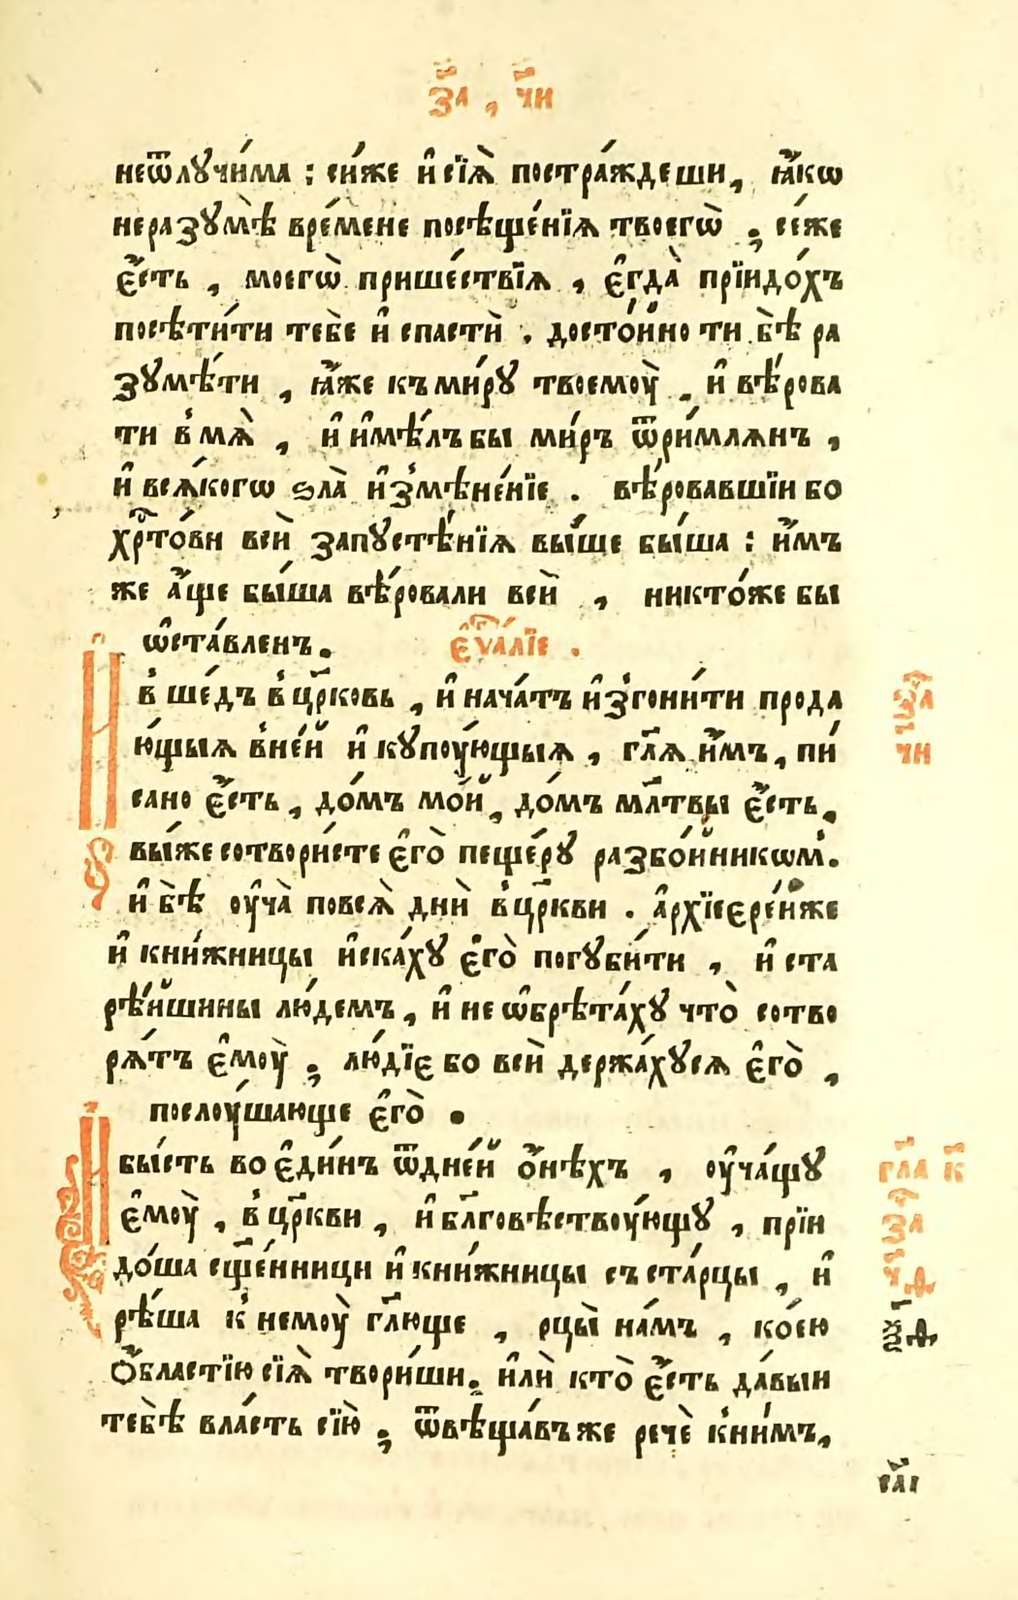 за҃ , чи҃
неѿлꙋчи́ма ; си́же и҆ сїѧ̀ постра́ждеши, ꙗ҆́кѡ
неразꙋмѣ̀ вре́мене посѣще́нїѧ твоегѡ̀ . се́же
є҆́сть , моегѡ̀ прише́ствїѧ , є҆гда̀ прїидо́хъ
посѣти́ти тебѐ и҆ спастѝ . досто́йно ти бѣ̀ ра
зꙋмѣ́ти , ꙗ҆́же къ ми́рꙋ твоемꙋ̀ , и҆ вѣ́рова
ти в̾ мѧ̀ , и҆ и҆мѣ́лъ бы ми́ръ ѿри́млѧнъ ,
и҆ всѧ́когѡ ѕла̀ и҆з̾мѣне́нїе . вѣ́ровавшїи бо
хрⷭ҇то́ви всѝ запꙋстѣ́нїѧ вы́ше бы́ша : и҆́мъ
же а҆́ще бы́ша вѣ́ровали всѝ , никто́же бы
ѡ҆ста́вленъ. є҆ѵⷢ҇алїе .
И҆ в̾ше́дъ в̾ цр҃ковь , и҆ нача́тъ и҆з̾гони́ти прода
ю́щыѧ в̾не́й и҆ кꙋпоу́ющыѧ , гл҃ѧ и҆́мъ , пи́
сано є҆́сть , до́мъ мо́й , до́мъ мл҃твы є҆́сть .
вы́же сотвори́сте є҆го̀ пеще́рꙋ разбо́йникѡм̾ .
и҆ бѣ̀ оу҆ча̀ повсѧ̀ дни̑ в̾ цр҃кви . а҆рхїєре́иже
и҆ кни́жницы и҆ска́хꙋ є҆го̀ погꙋби́ти , и҆ ста
рѣ́йшины лю́демъ , и҆ не ѡ҆брѣта́хꙋ что̀ сотво
рѧ́тъ є҆моу̀ ; лю́дїє бо всѝ держа́хꙋсѧ є҆го̀ ,
послоу́шающе є҆го̀ .
И҆ бы́сть во є҆ди́нъ ѿдне́й о҆́нѣхъ , оу҆ча́щꙋ
є҆моу̀ , в̾ цр҃кви , и҆ бл҃говѣствоу́ющꙋ , прїи
до́ша сщ҃е́нници и҆ кни́жницы съ ста́рцы , и҆
рѣ́ша к̾ немоу̀ гл҃юще , рцы̀ на́мъ , ко́ею
о҆́бластїю сїѧ̀ твори́ши . и҆лѝ кто̀ є҆́сть да́выи
тебѣ̀ вла́сть сїю̀ ; ѿвѣща́въ же речѐ к̾ни́мъ ,
за҃
чи҃
гл҃а к҃
за҃
ч҃ѳ
са҃і